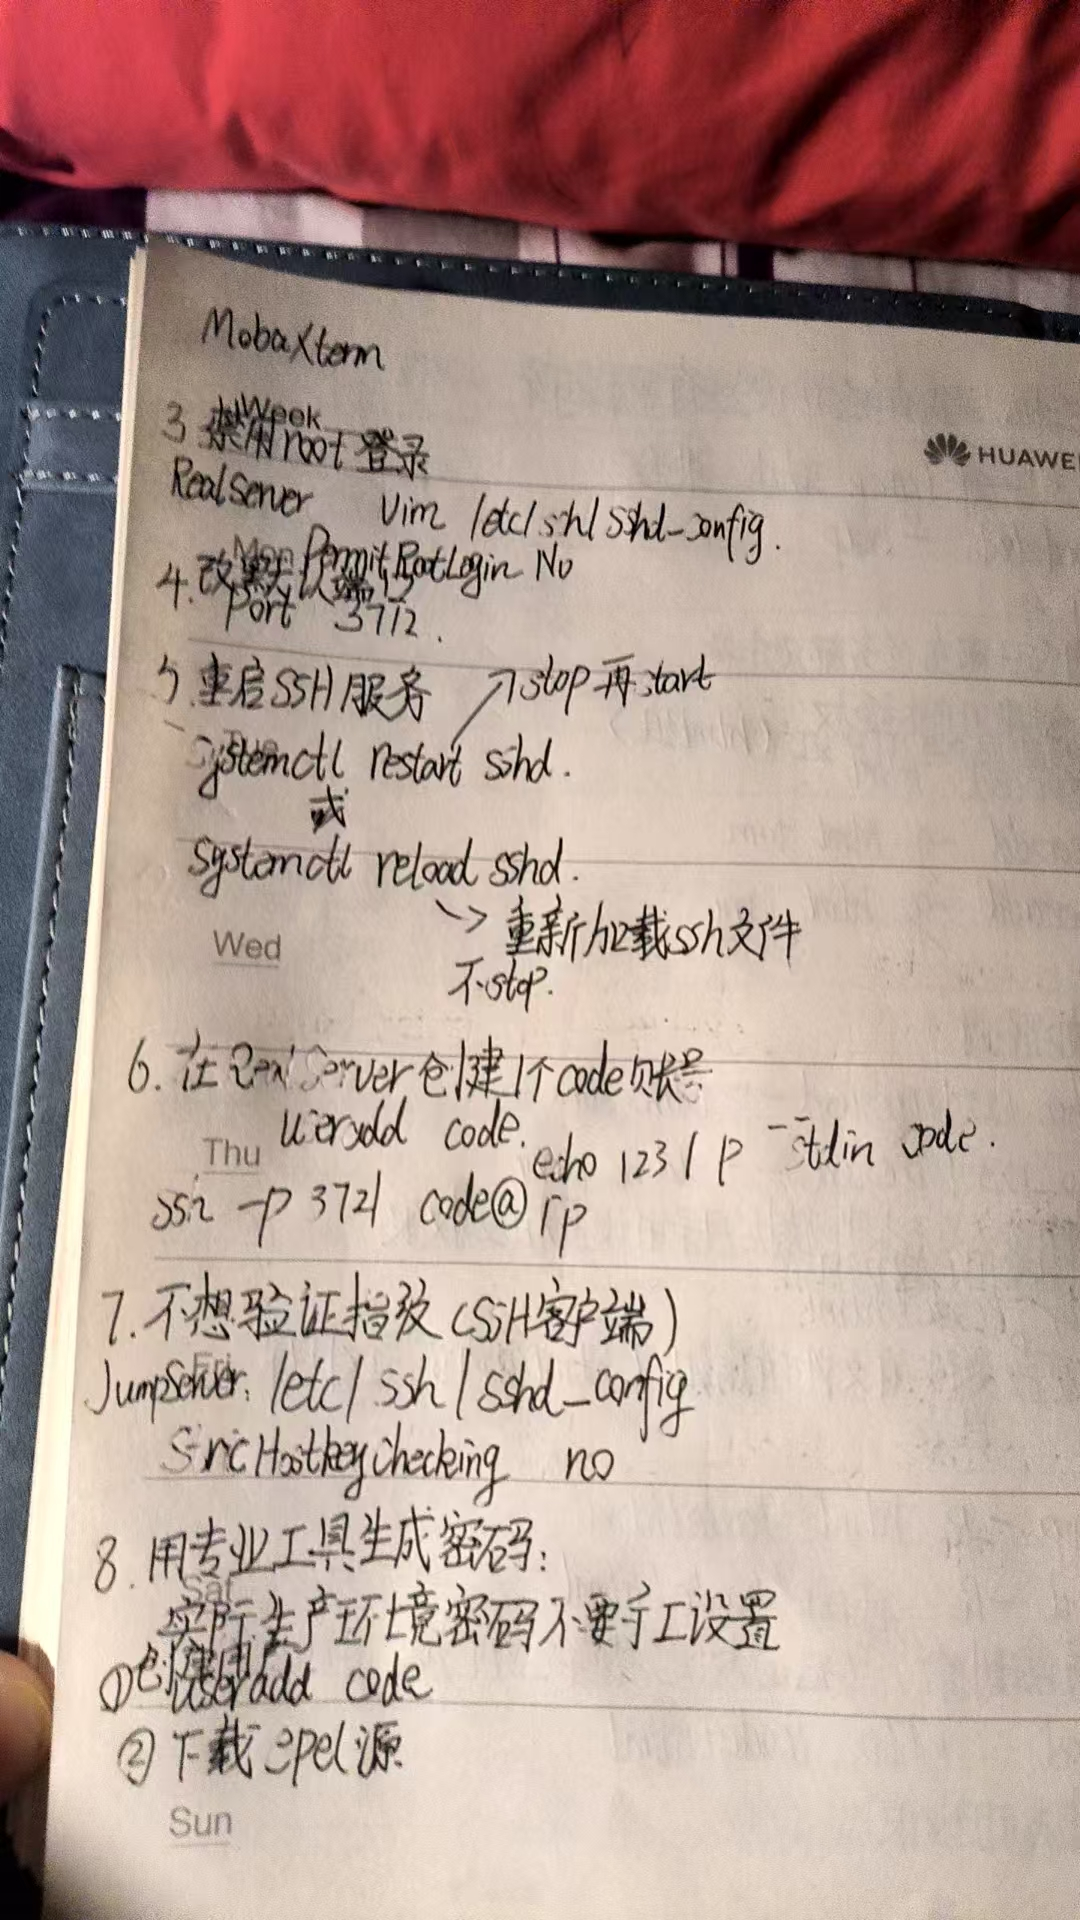 MobaXterm
Week
3 禁用root 登录
HUAWEI
RealServer vim /etc/ssh/sshd_config.
Mon PermitRootLogin No
4. 改默认端口
Port 3712.
5 重启SSH服务 ↗stop再start
Tue
Systemctl restart sshd.
或
Systemctl reload sshd.
Wed → 重新加载ssh文件
不stop.
6. 在RealServer创建1个code账号
useradd code.
Thu echo 123 | p --stdin code.
ssh -p 3721 code@ip
7. 不想验证指纹(SSH客户端)
Fri
JumpServer: /etc/ssh/sshd_config
StricHostkeychecking no
8. 用专业工具生成密码:
Sat
实际生产环境密码不要手工设置
① useradd code
② 下载epel源
Sun